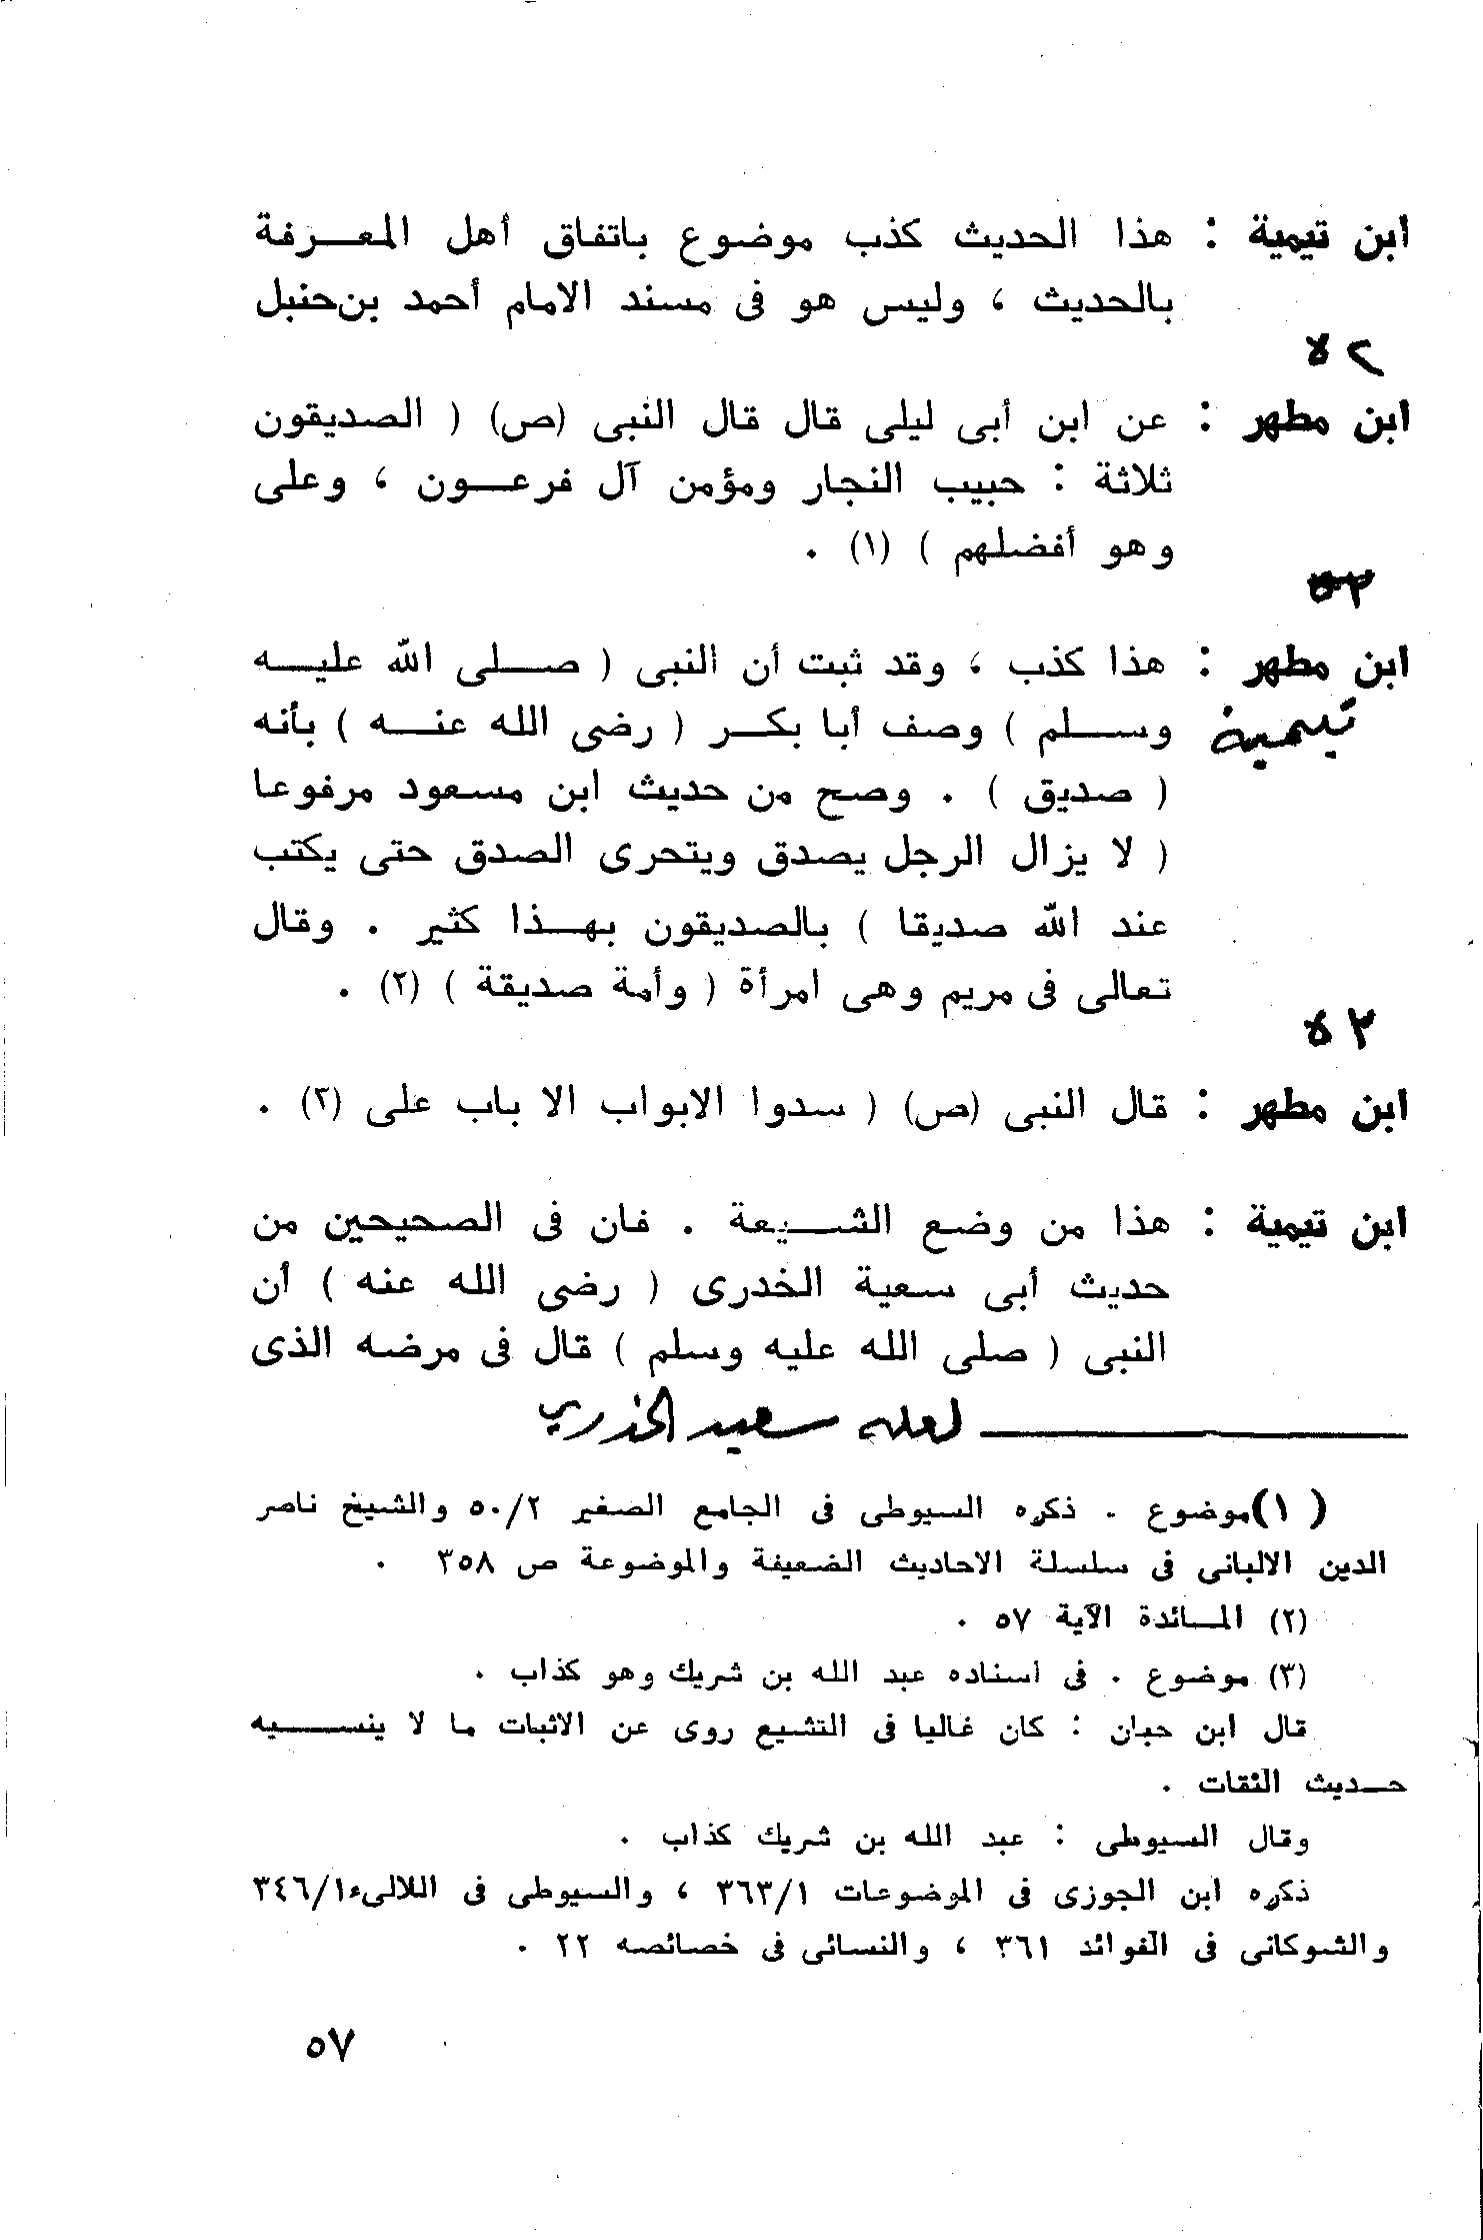 ابن تيمية : هذا الحديث كذب موضوع باتفاق أهل المعـــرفة
بالحديث ، وليس هو فى مسند الامام أحمد بن حنبل
ابن مطهر : عن ابن أبى ليلى قال قال النبى (ص) ( الصديقون
ثلاثة : حبيب النجار ومؤمن آل فرعـــون ، وعلى
وهو أفضلهم ) (١) .
ابن مطهر : هذا كذب ، وقد ثبت أن النبى ( صـــلى الله عليـــه
تيمية
وســـلم ) وصف أبا بكـــر ( رضى الله عنـــه ) بأنه
( صديق ) . وصح من حديث ابن مسعود مرفوعا
( لا يزال الرجل يصدق ويتحرى الصدق حتى يكتب
عند الله صديقا ) بالصديقون بهـــذا كثير . وقال
تعالى فى مريم وهى امرأة ( وأمة صديقة ) (٢) .
ابن مطهر : قال النبى (ص) ( سدوا الابواب الا باب على (٣) .
ابن تيمية : هذا من وضع الشـــيعة . فان فى الصحيحين من
حديث أبى سعية الخدرى ( رضى الله عنه ) أن
النبى ( صلى الله عليه وسلم ) قال فى مرضه الذى
لعله سعيد الخدري
(١) موضوع . ذكره السيوطى فى الجامع الصغير ٥٠/٢ والشيخ ناصر
الدين الالبانى فى سلسلة الاحاديث الضعيفة والموضوعة ص ٣٥٨ .
(٢) المـائدة الآية ٥٧ .
(٣) موضوع . فى اسناده عبد الله بن شريك وهو كذاب .
قال ابن حبان : كان غاليا فى التشيع روى عن الاثبات ما لا ينســـيه
حـديث الثقات .
وقال السيوطى : عبد الله بن شريك كذاب .
ذكره ابن الجوزى فى الموضوعات ٣٦٣/١ ، والسيوطى فى اللالىء ٣٤٦/١
والشوكانى فى الفوائد ٣٦١ ، والنسائى فى خصائصه ٢٢ .
٥٧